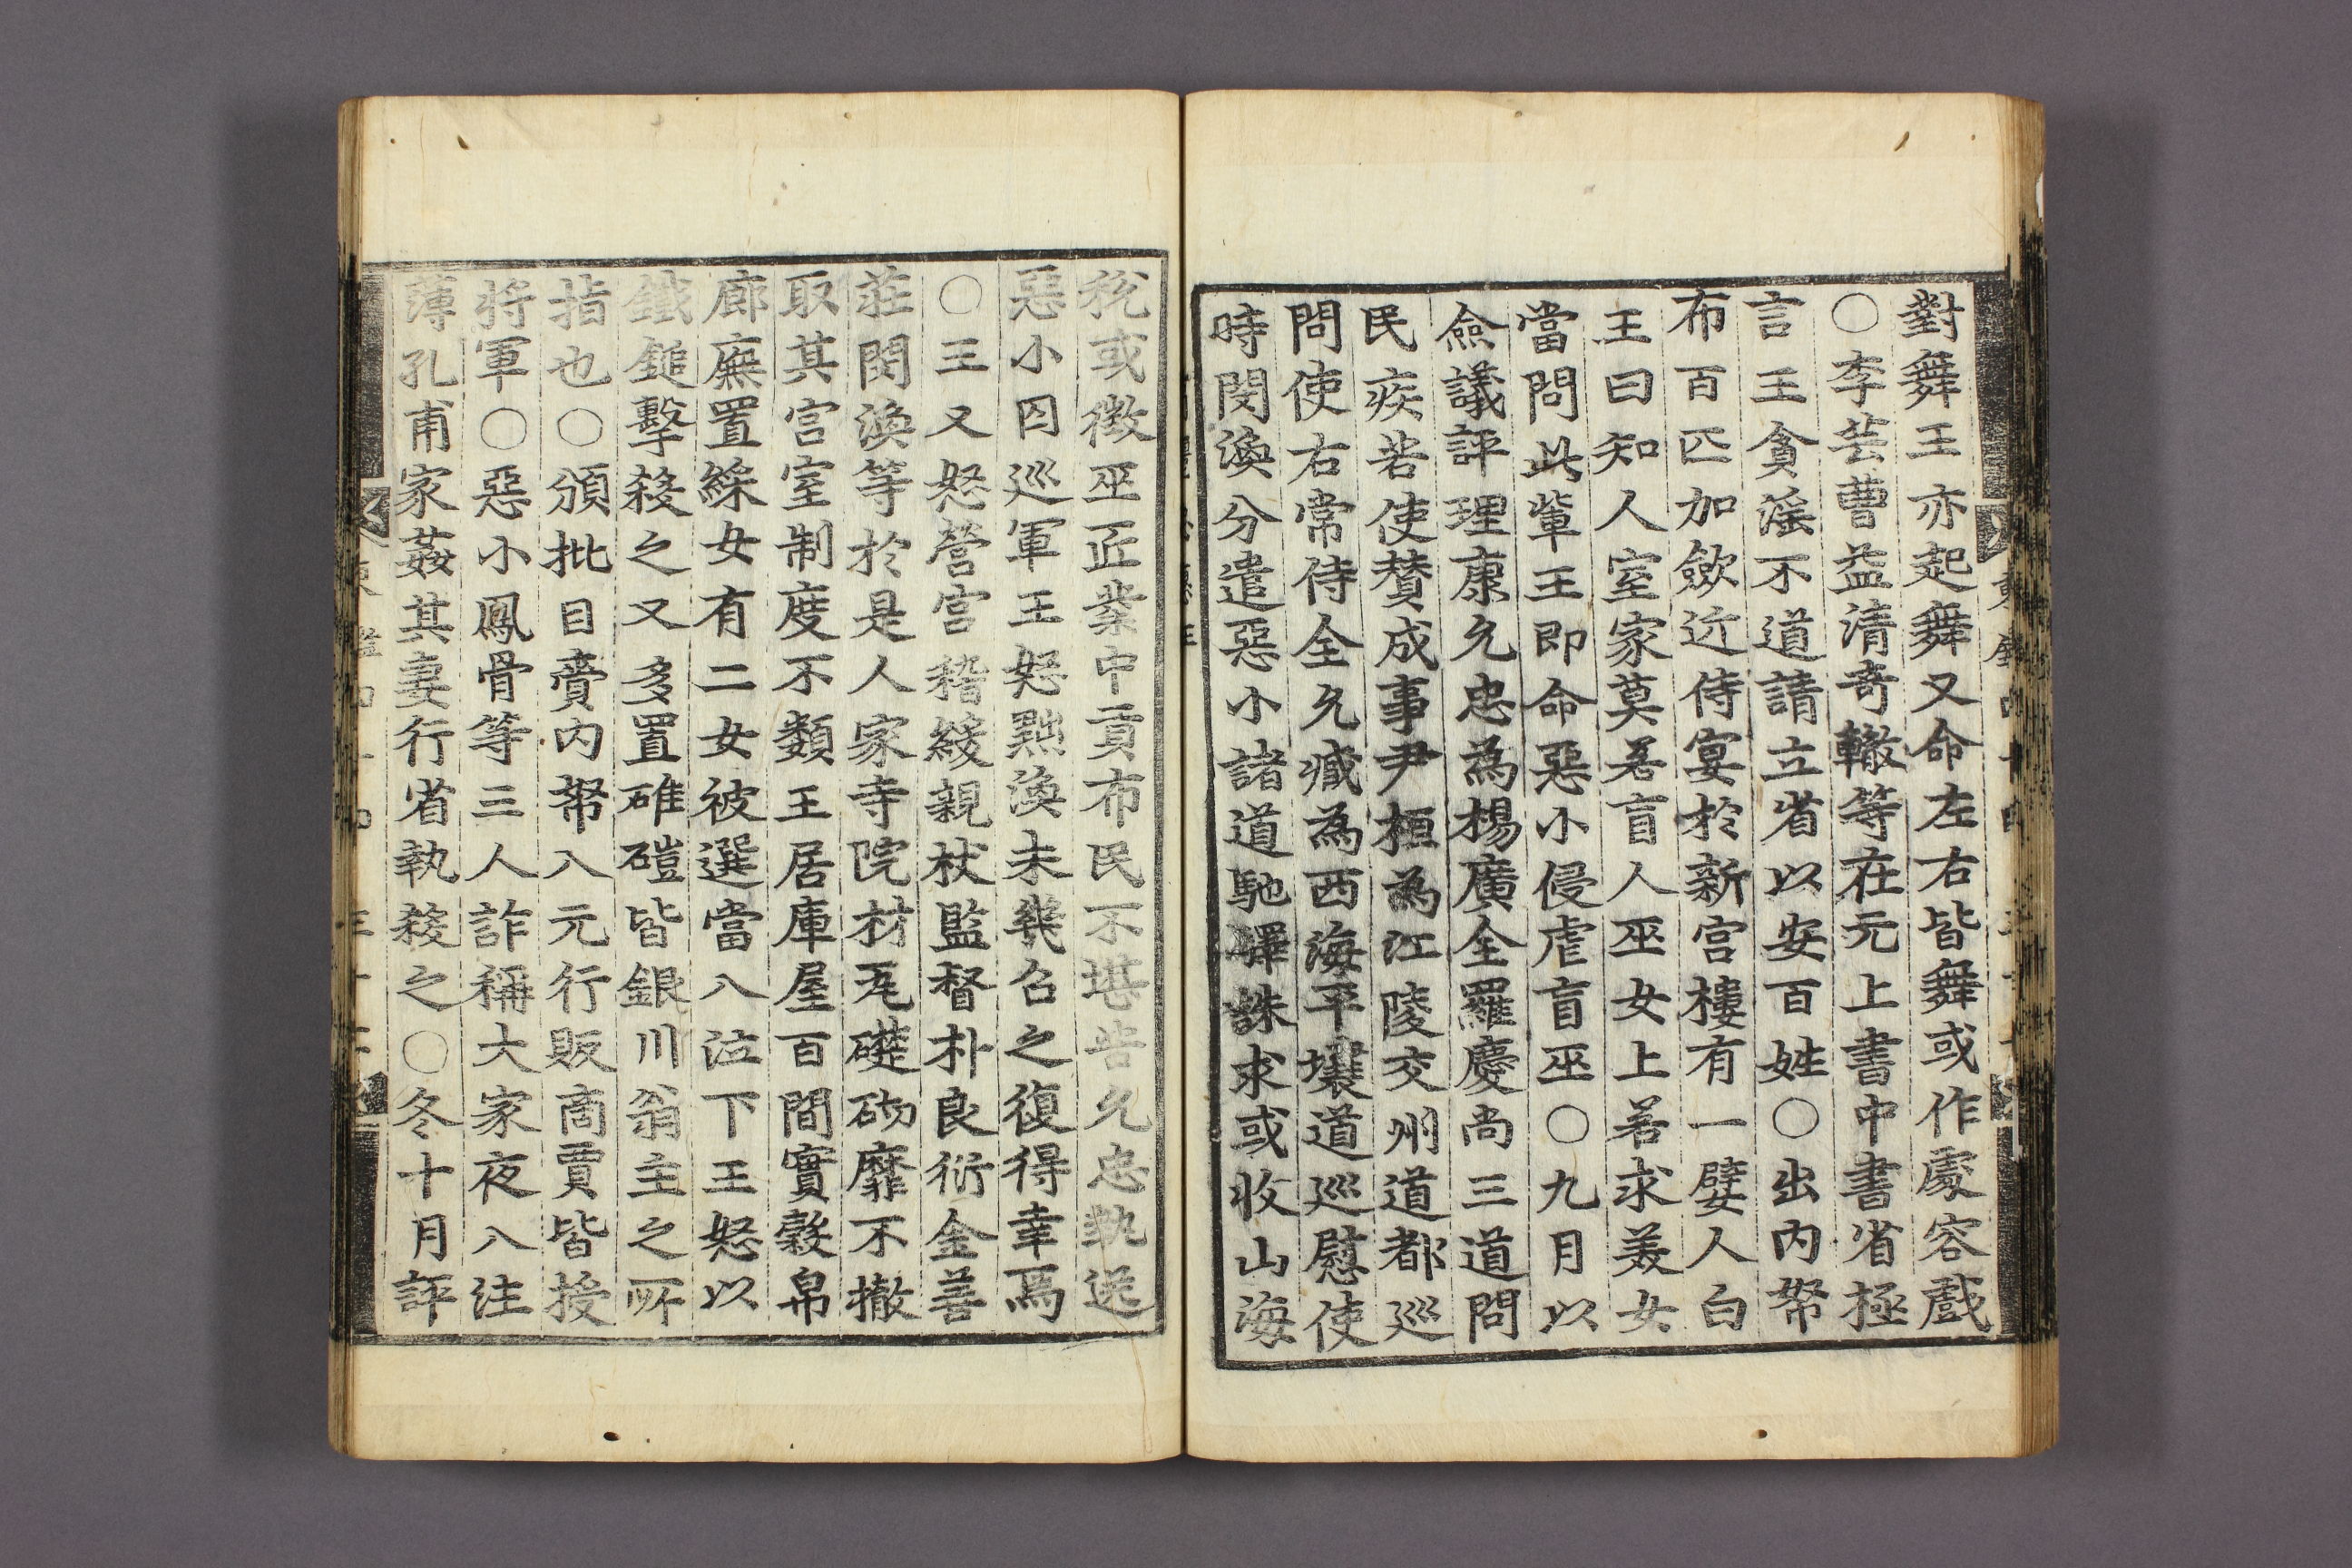 對舞王亦起舞又命左右皆舞或作處容戲
○李芸曹益淸奇轍等在元上書中書省極
言王貪滛不道請立省以安百姓○出內帑
布百匹加歛近侍宴於新宮樓有一嬖人白
王曰知人室家莫若盲人巫女上若求美女
當問此輩王即命惡小侵虐盲巫○九月以
僉議評理康允忠為楊廣全羅慶尚三道問
民疾苦使贊成事尹桓為江陵交州道都巡
問使右常侍全允臧為西海平壤道巡慰使
時閔渙分遣惡小諸道馳驛誅求或收山海
稅或徵巫匠業中貢布民不堪苦允忠執送
惡小囚巡軍王怒黜渙未幾召之復得幸焉
○王又怒營宮稽緩親杖監督朴良衍金善
莊閔渙等於是人家寺院材瓦礎砌靡不撤
取其宮室制度不類王居庫屋百間實穀帛
廊廡置綵女有二女被選當入泣下王怒以
鐵鎚擊殺之又多置碓磑皆銀川翁主之所
指也○頒批目賷內帑入元行販商賈皆授
將軍○惡小鳳骨等三人詐稱大家夜入注
薄孔甫家姦其妻行省執殺之○冬十月評